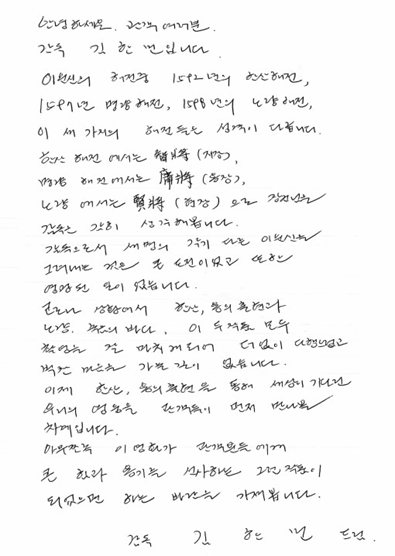 안녕하세요. 관객 여러분.
감독 김한민입니다.
이순신의 해전중 1592년의 한산해전,
1597년 명량해전, 1598년의 노량해전,
이 세가지의 해전들은 성격이 다릅니다.
한산 해전에서는 智將 (지장),
명량 해전에서는 勇將 (용장),
노량 에서는 賢將 (현장) 으로 장군님을
감독은 감히 생각해봅니다.
감독으로서 세명의 각기 다른 이순신을
그려내는 것은 큰 도전이었고 또한
영광된 일이었습니다.
코로나 상황에서 한산, 용의 출현과
노량. 죽음의 바다. 이 두작품 모두
촬영을 잘 마치게 되어 더없이 다행스럽고
벅찬 마음을 가눌 길이 없습니다.
이제 한산, 용의 출현을 통해 세상이 기다린
우리의 영웅을 관객들이 먼저 만나볼
차례입니다.
아무쪼록 이 영화가 관객분들에게
큰 힘과 용기를 선사하는 그런 작품이
되었으면 하는 바람을 가져봅니다.
감독 김 한 민 드림.